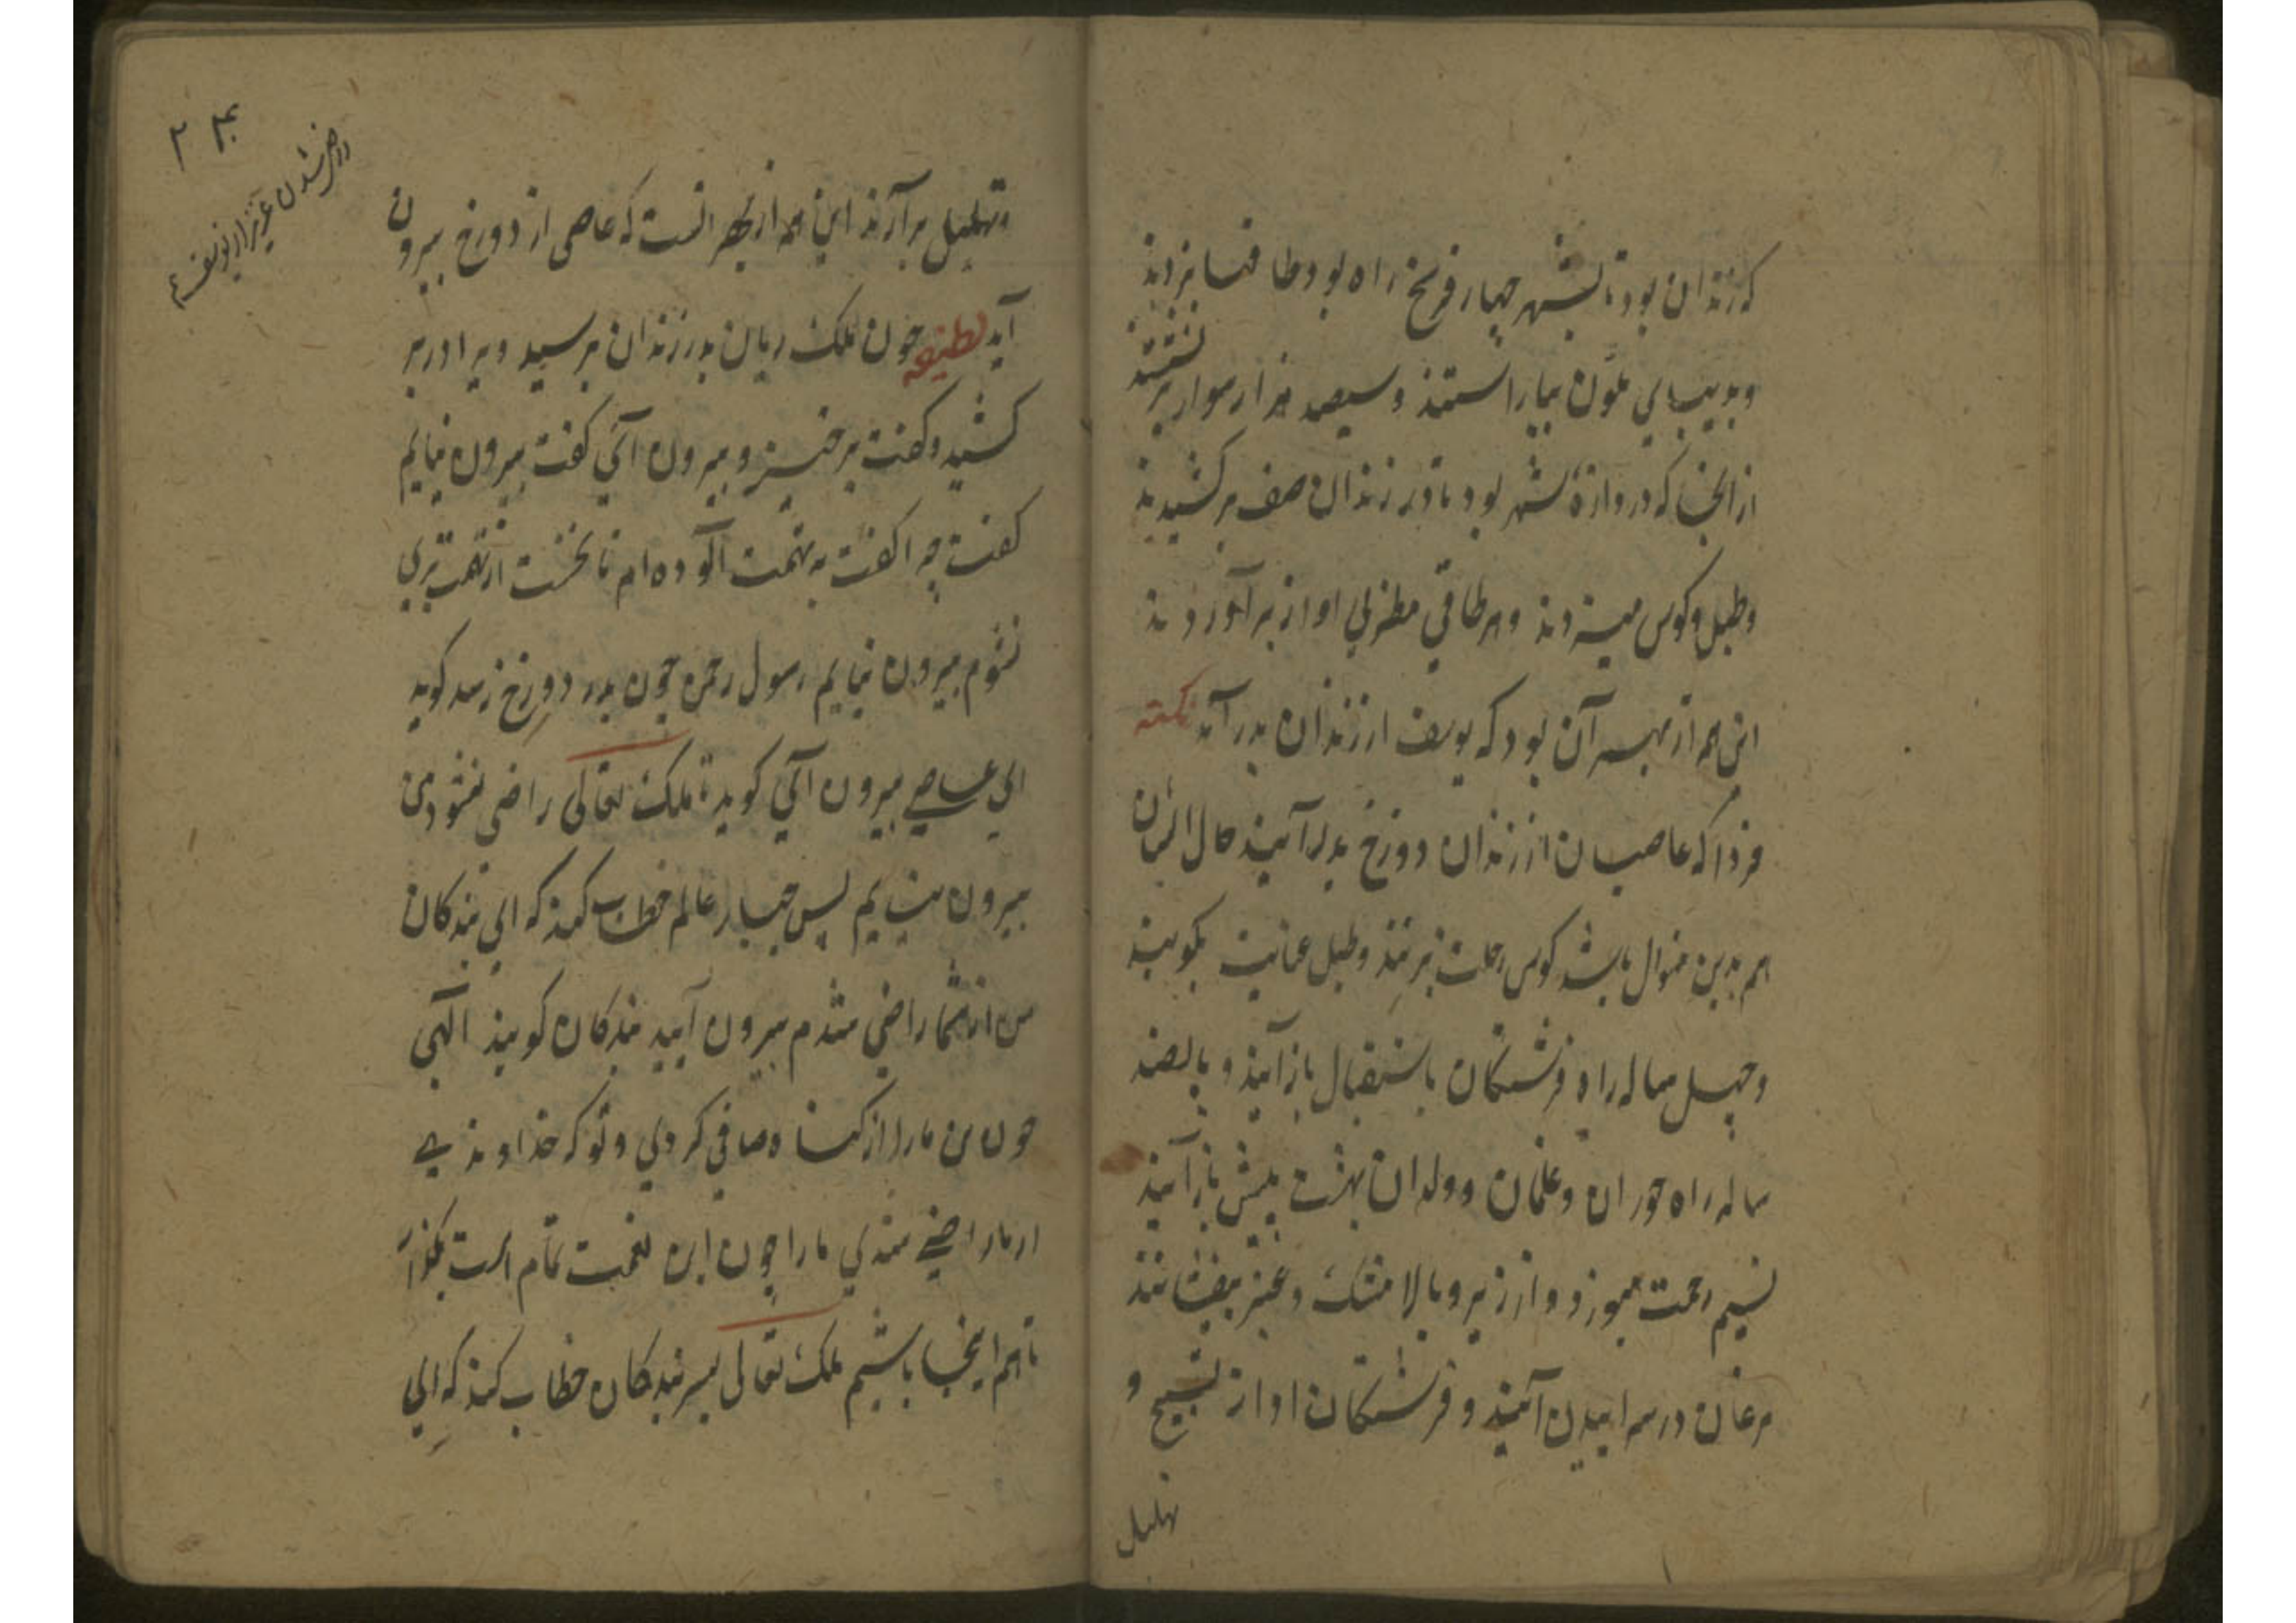 که زندان بود تا بشهر چهار فرسخ راه بود طاقها بزدند
و بدیبای ملون بیاراستند و سیصد هزار سوار بر نشستند
از انجا که دروازهٔ شهر بود تا در زندان صف برکشیدند
و طبل و کوس میزدند و هر طاقی مطربی اواز برآوردند
این همه از بهر آن بود که یوسف از زندان بدر آید نکته
فردا که عاصیان از زندان دوزخ بدر آیند حال ایشان
هم بدین منوال باشد کوس رحمت بزنند و طبل عنایت بکوبند
و چهل ساله راه فرشتکان باستقبال باز آیند و پانصد
ساله راه حوران و غلمان و ولدان بهشت پیش باز آیند
نسیم رحمت میوزد و از زیر و بالا مشک و عنبر میفشانند
مرغان در سراییدن آیند و فرشتکان اواز تسبیح و
تهلیل
۲
رضی شدن عزیز از یوسف ع
و تهلیل برآرند این همه از بهر انست که عاصی از دوزخ بیرون
آید لطیفه چون ملک ریان بدر زندان برسید ویرا در بر
کشید و کفت برخیز و بیرون آی کفت بیرون نیایم
کفت چرا کفت به تهمت آلوده ام تا نخست از تهمت بری
نشوم بیرون نیایم رسول رحمن چون بدر دوزخ رسد کوید
ای عاصی بیرون آی کوید تا ملک تعالی راضی نشود من
بیرون نیایم پس جبار عالم خطاب کند که ای بندکان
من از شما راضی شدم بیرون آیید بندکان کویند الهی
چون من مارا از کناه صافی کردی و تو که خداوندی
از ما راضی شدی ما را چون این نعمت تمام است بکذار
تا هم اینجا باشیم ملک تعالی بسر بندکان خطاب کند که ای